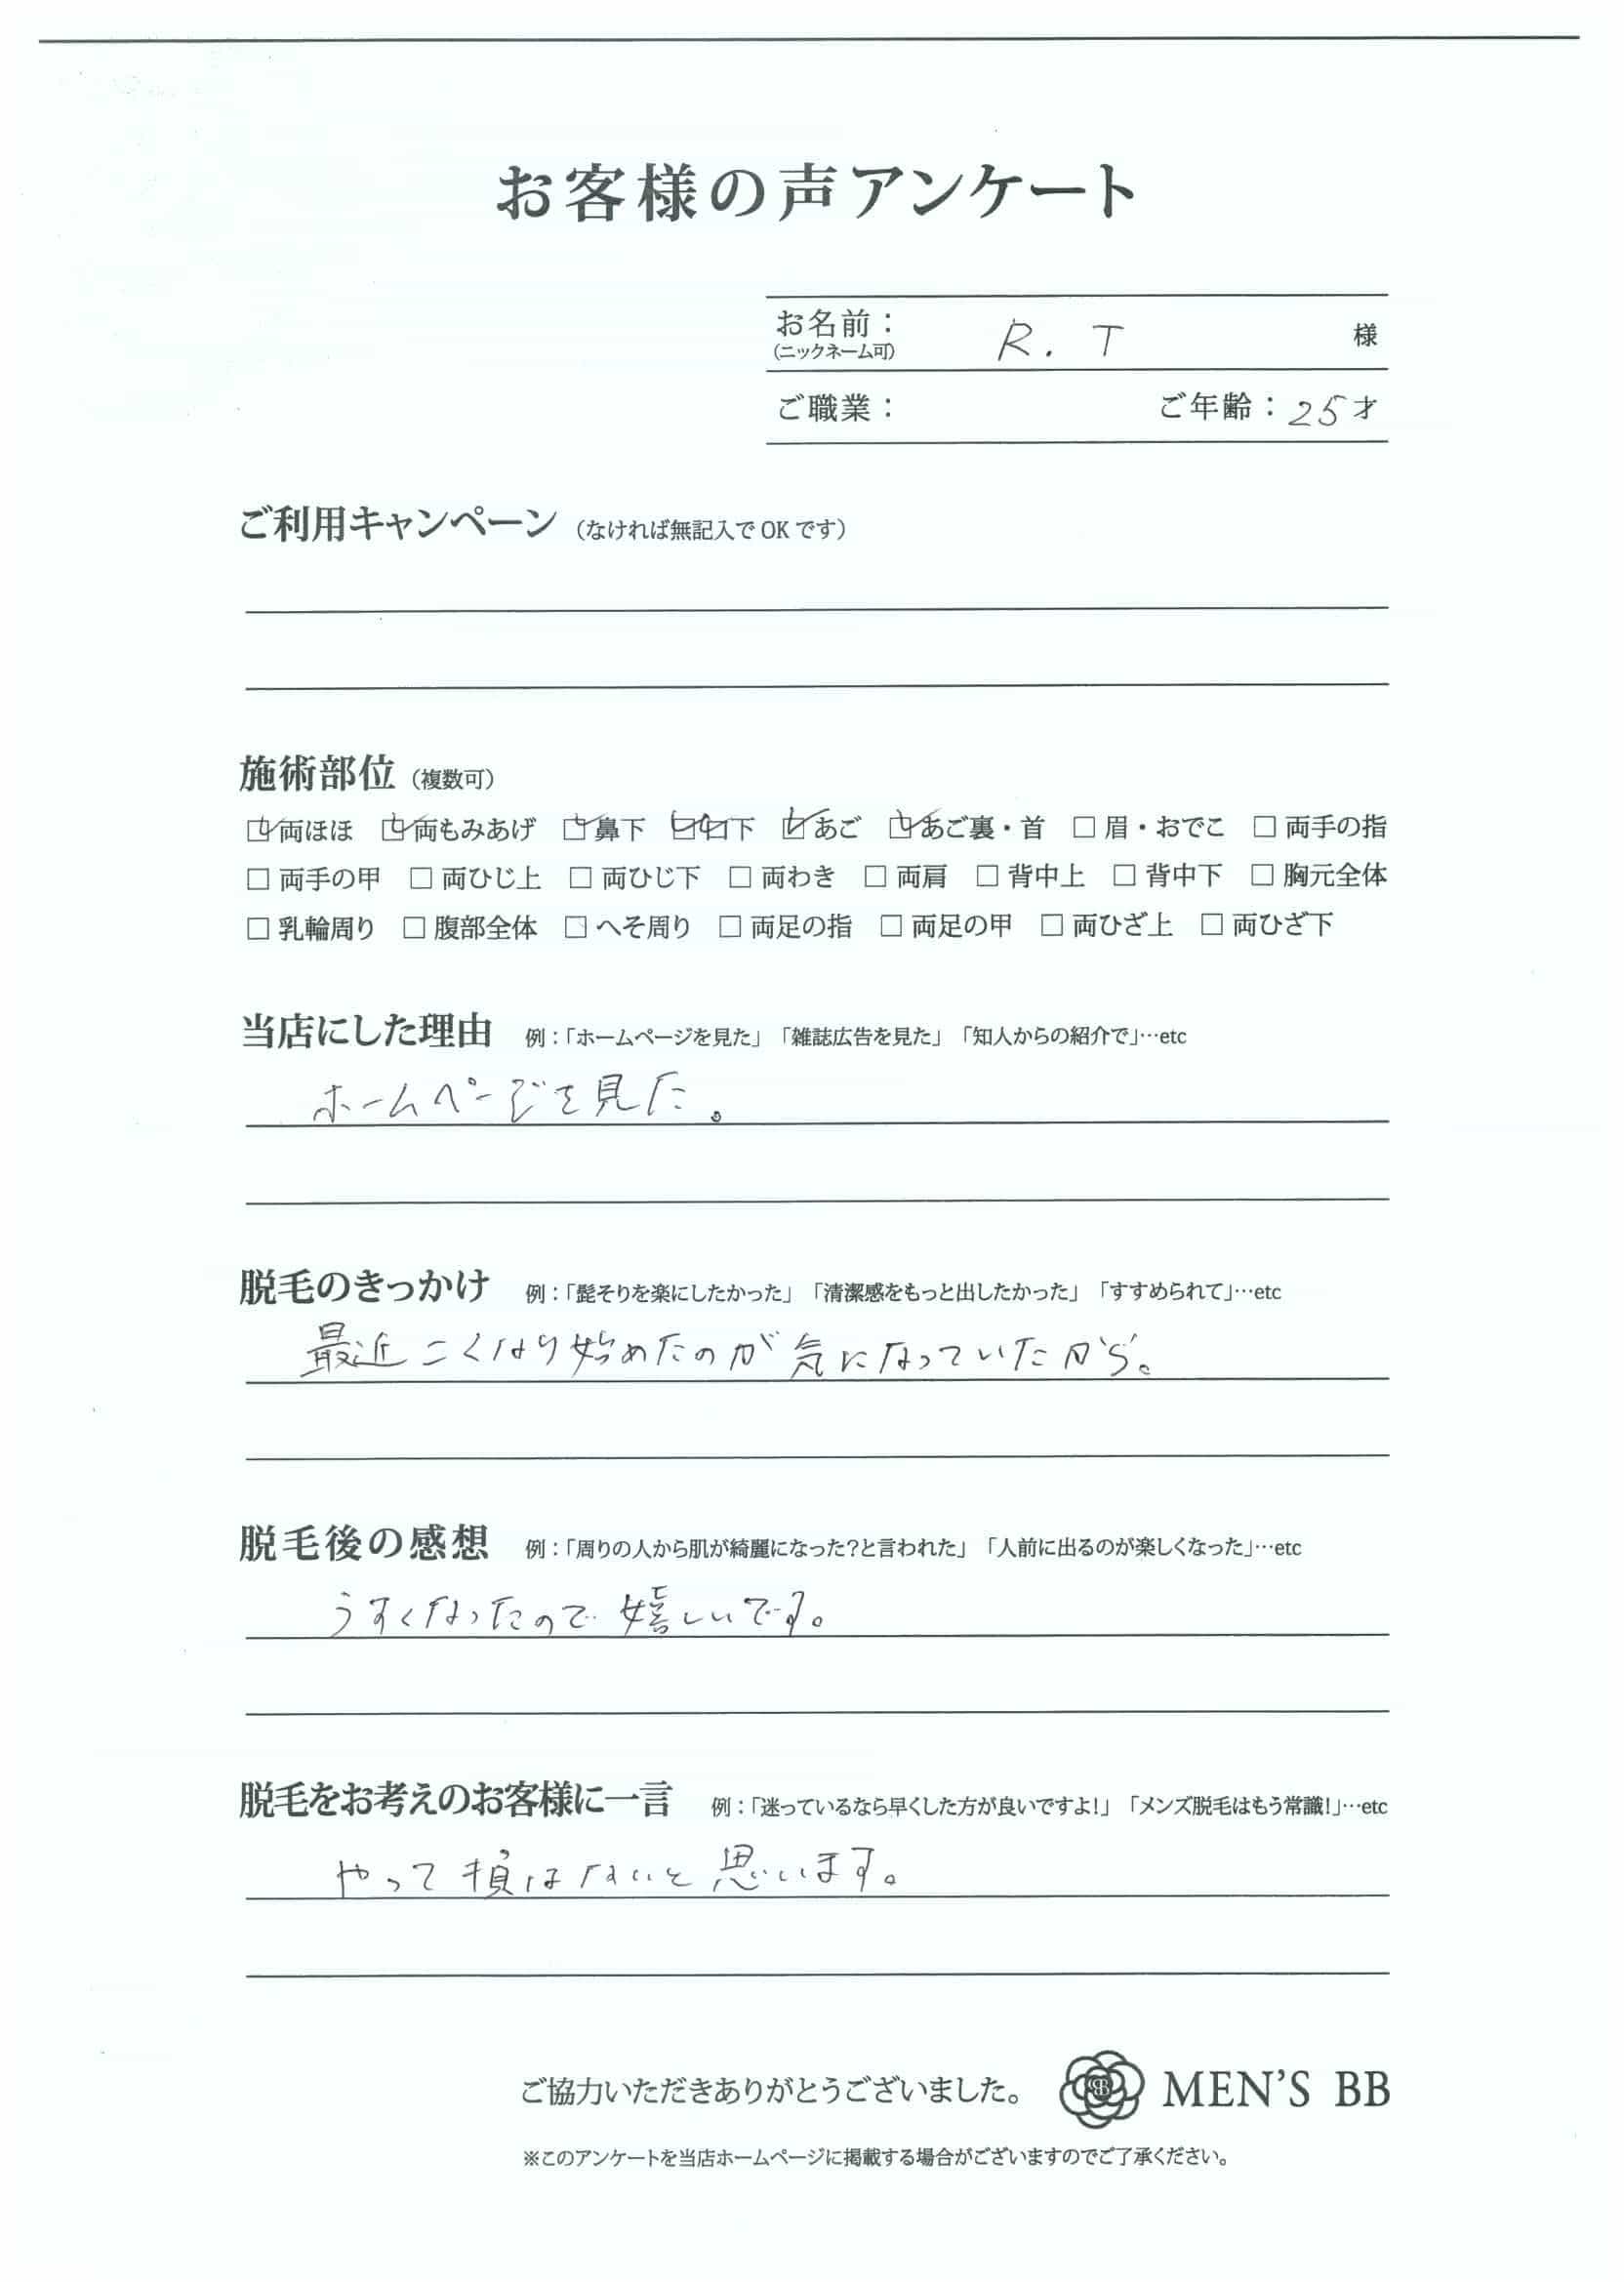 お客様の声アンケート
お名前： R. T 様
(ニックネーム可)
ご職業： ご年齢：25才
ご利用キャンペーン（なければ無記入でOKです）
施術部位（複数可）
☑両ほほ ☑両もみあげ ☑鼻下 ☑口下 ☑あご ☑あご裏・首 □眉・おでこ □両手の指
□両手の甲 □両ひじ上 □両ひじ下 □両わき □両肩 □背中上 □背中下 □胸元全体
□乳輪周り □腹部全体 □へそ周り □両足の指 □両足の甲 □両ひざ上 □両ひざ下
当店にした理由 例：「ホームページを見た」「雑誌広告を見た」「知人からの紹介で」…etc
ホームページを見た。
脱毛のきっかけ 例：「髭そりを楽にしたかった」「清潔感をもっと出したかった」「すすめられて」…etc
最近こくなり始めたのが気になっていたから。
脱毛後の感想 例：「周りの人から肌が綺麗になった？と言われた」「人前に出るのが楽しくなった」…etc
うすくなったので嬉しいです。
脱毛をお考えのお客様に一言 例：「迷っているなら早くした方が良いですよ！」「メンズ脱毛はもう常識！」…etc
やって損はないと思います。
ご協力いただきありがとうございました。 MEN'S BB
※このアンケートを当店ホームページに掲載する場合がございますのでご了承ください。